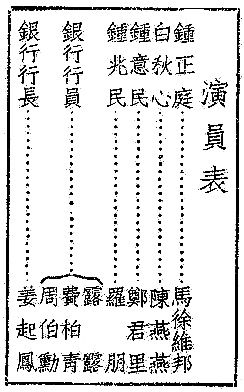 演員表
鍾正庭……馬徐維邦
白秋心……陳燕燕
鍾意民……鄭君里
鍾兆民……羅朋
銀行行員……露露
費柏青
周伯勳
銀行行長……姜起鳳